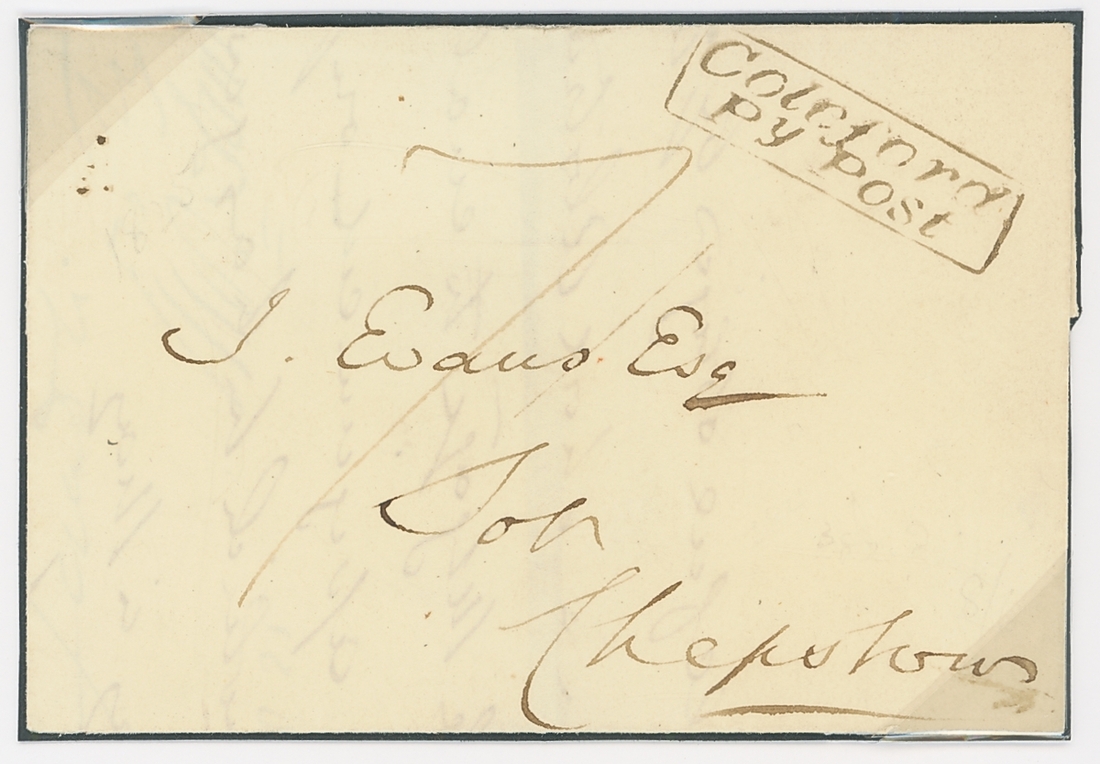 Coleford
Py Post
7
J. Evans. Esq
Solr
Chepstow